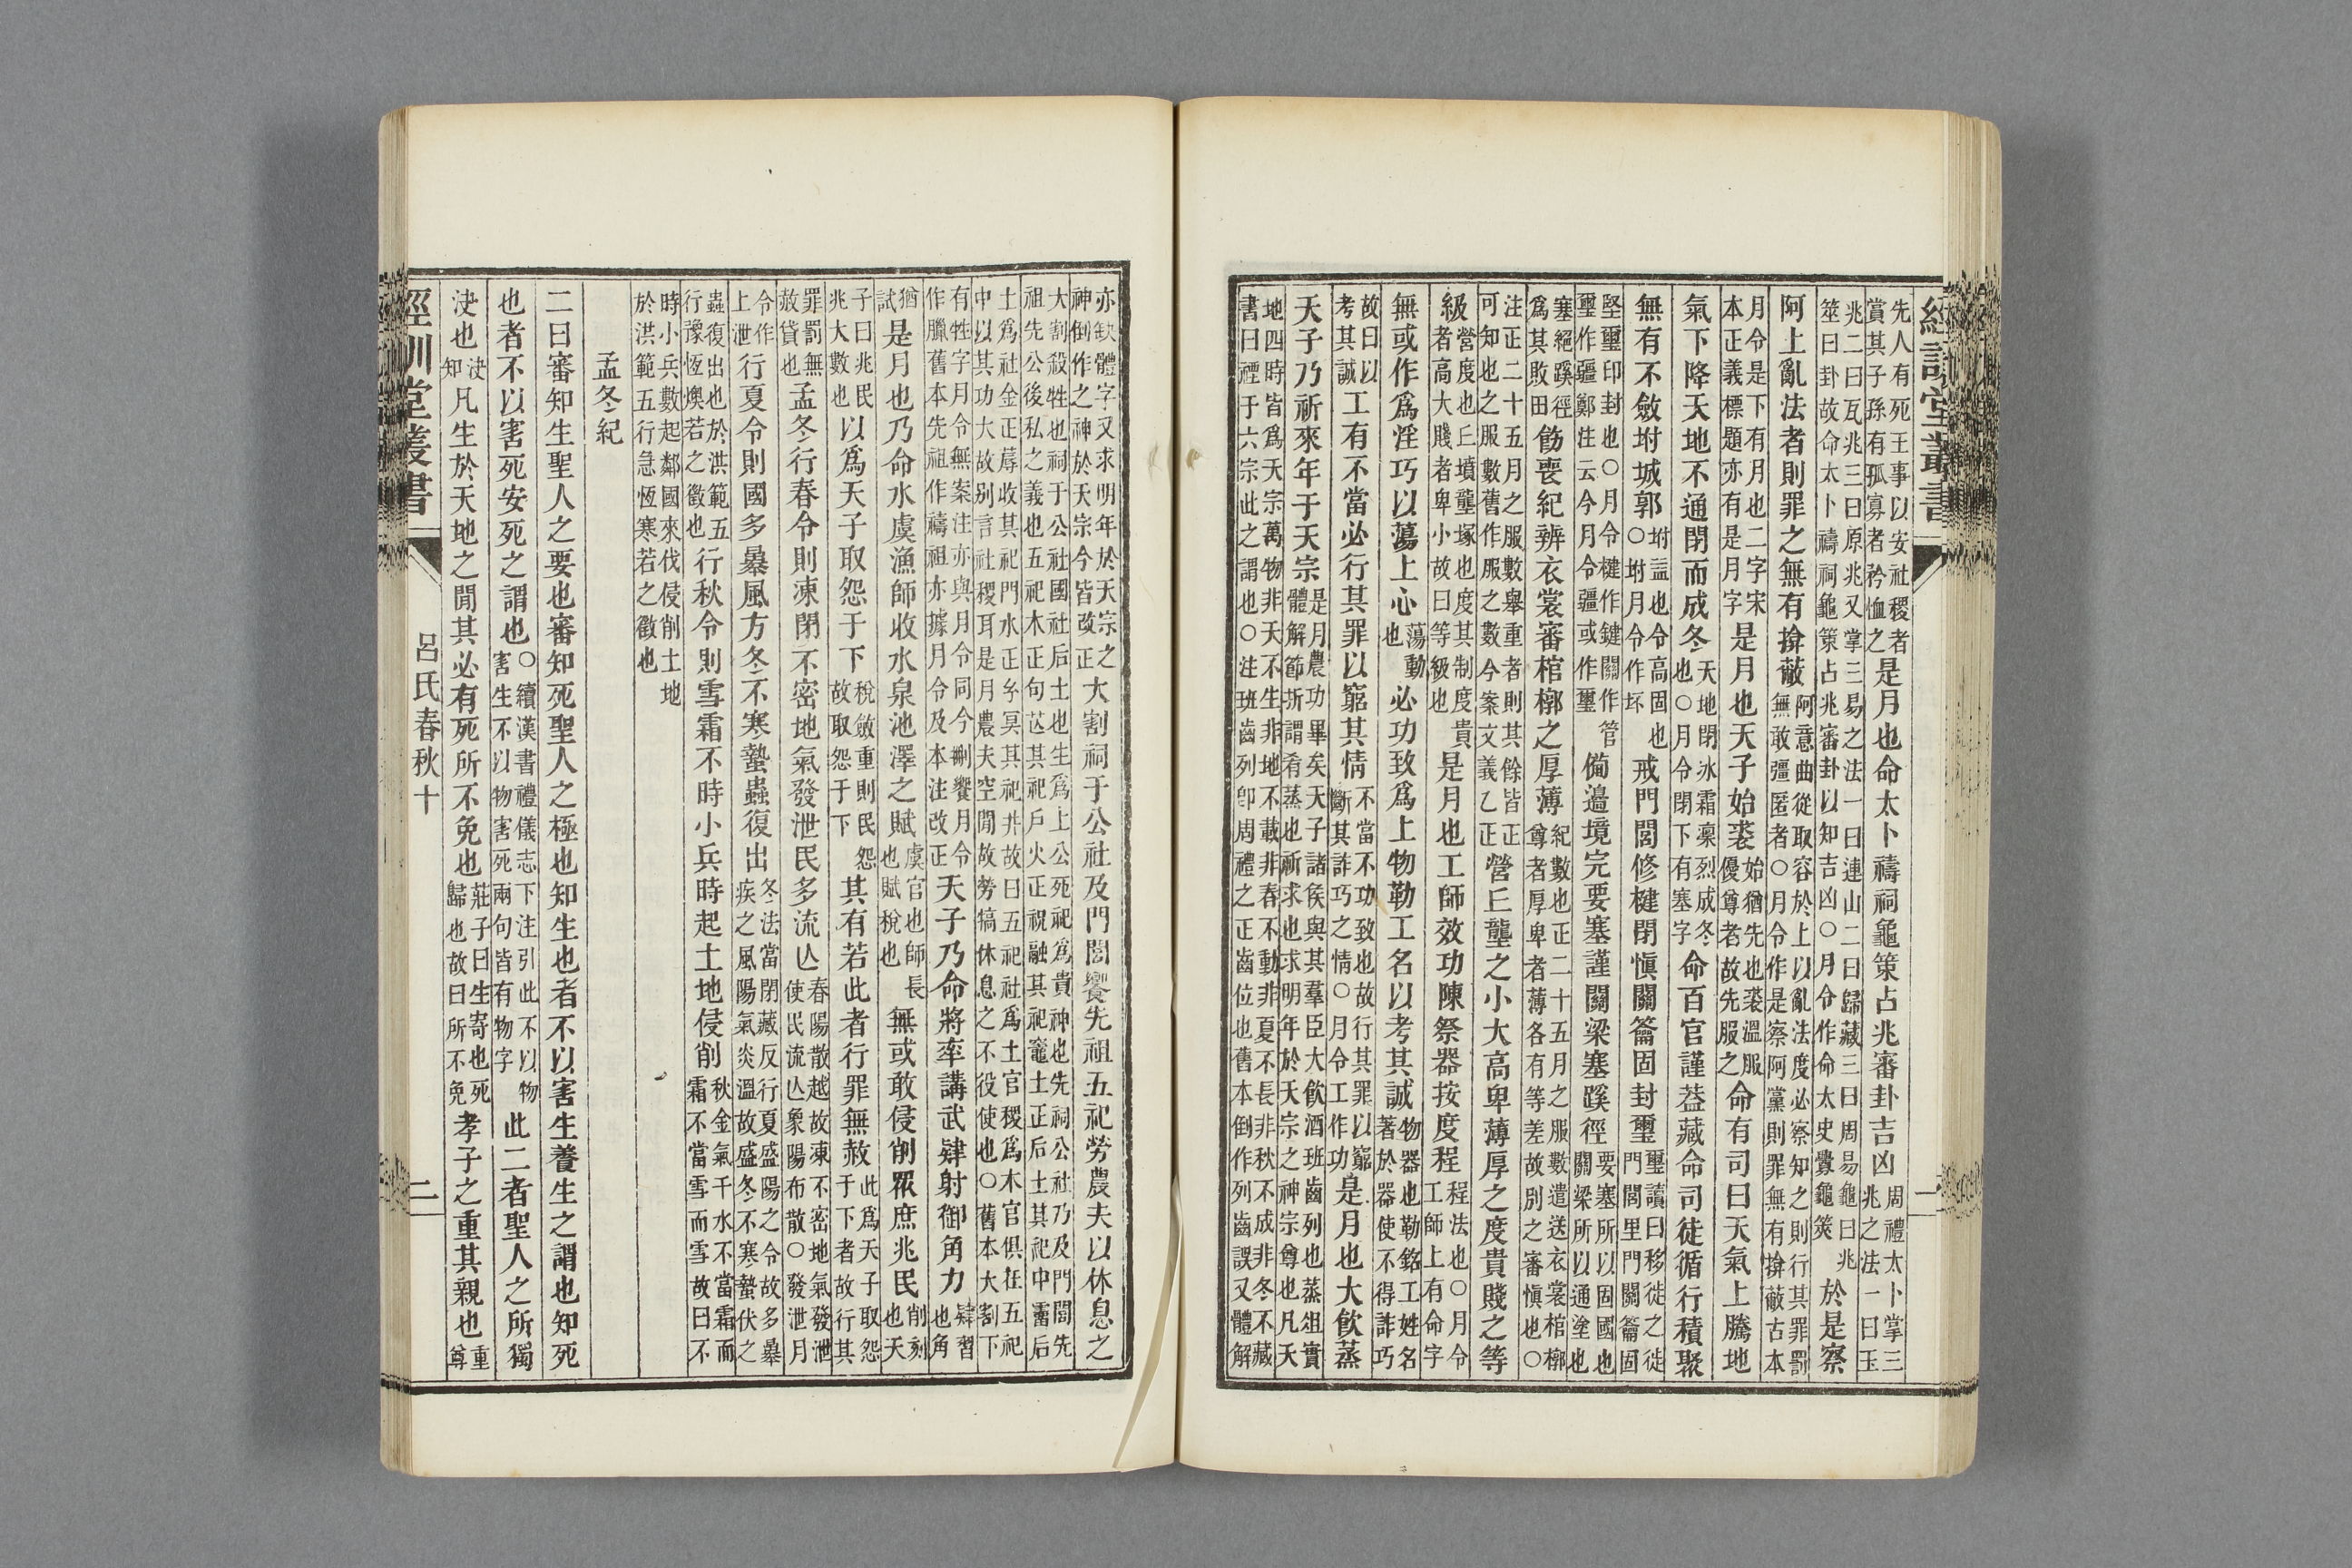 經訓堂叢書
先人有死王事以安社稷者賞其子孫有孤寡者矜恤之是月也命太卜禱祠龜策占兆審卦吉凶周禮太卜掌三兆之法一曰玉
兆二曰瓦兆三曰原兆又掌三易之法一曰連山二曰歸藏三曰周易龜曰兆筮曰卦故命太卜禱祠龜策占兆審卦以知吉凶○月令作命太史釁龜筴於是察
阿上亂法者則罪之無有揜蔽阿意曲從取容於上以亂法度必察知之則行其罪罰無敢彊匿者○月令作是察阿黨則罪無有揜蔽古本
月令是下有月也二字宋本正義標題亦有是月字是月也天子始裘始猶先也裘溫服優尊者故先服之命有司曰天氣上騰地
氣下降天地不通閉而成冬天地閉冰霜凛烈成冬也○月令閉下有塞字命百官謹葢藏命司徒循行積聚
無有不斂坿城郭坿益也令高固也○坿月令作坏戒門閭修楗閉愼關籥固封璽璽讀曰移徙之徙門閭里門關籥固
堅璽印封也○月令楗作鍵關作管璽作疆鄭注云今月令疆或作璽備邊境完要塞謹關梁塞蹊徑要塞所以固國也關梁所以通塗也
塞絕蹊徑爲其敗田飭喪紀辨衣裳審棺槨之厚薄紀數也正二十五月之服數遣送衣裳棺槨尊者厚卑者薄各有等差故別之審愼也○
注正二十五月之服數舉重者則其餘皆正可知也之服數舊作服之數今案文義乙正營丘壟之小大高卑薄厚之度貴賤之等
級營度也丘墳壟塚也度其制度貴者高大賤者卑小故曰等級也是月也工師效功陳祭器按度程程法也○月令工師上有命字
無或作爲淫巧以蕩上心蕩動也必功致爲上物勒工名以考其誠物器也勒銘工姓名著於器使不得詐巧
故曰以考其誠工有不當必行其罪以窮其情不當不功致也故行其罪以窮斷其詐巧之情○月令工作功是月也大飲蒸
天子乃祈來年于天宗是月農功畢矣天子諸侯與其羣臣大飲酒班齒列也蒸俎實體解節折謂肴蒸也祈求也求明年於天宗之神宗尊也凡天
地四時皆爲天宗萬物非天不生非地不載非春不動非夏不長非秋不成非冬不藏書曰禋于六宗此之謂也○注班齒列卽周禮之正齒位也舊本倒作列齒誤又體解
亦缺體字又求明年於天宗之神倒作之神於天宗今皆改正大割祠于公社及門閭饗先祖五祀勞農夫以休息之
大割殺牲也祠于公社國社后土也生爲上公死祀爲貴神也先祠公社乃及門閭先祖先公後私之義也五祀木正句芒其祀戶火正祝融其祀竈土正后土其祀中霤后
土爲社金正蓐收其祀門水正玄冥其祀井故曰五祀社爲土官稷爲木官俱在五祀中以其功大故別言社稷耳是月農夫空閒故勞犒休息之不役使也○舊本大割下
有牲字月令無案注亦與月令同今刪饗月令作臘舊本先祖作禱祖亦據月令及本注改正天子乃命將率講武肄射御角力肄習也角
猶試是月也乃命水虞漁師收水泉池澤之賦虞官也師長也賦稅也無或敢侵削眾庶兆民削刻也天
子曰兆民兆大數也以爲天子取怨于下稅斂重則民怨故取怨于下其有若此者行罪無赦此爲天子取怨于下者故行其
罪罰無赦貸也孟冬行春令則凍閉不密地氣發泄民多流亾春陽散越故凍不密地氣發泄使民流亾象陽布散○發泄月
令作上泄行夏令則國多暴風方冬不寒蟄蟲復出冬法當閉藏反行夏盛陽之令故多暴疾之風陽氣炎溫故盛冬不寒蟄伏之
蟲復出也於洪範五行豫恆燠若之徵也行秋令則雪霜不時小兵時起土地侵削秋金氣干水不當霜而霜不當雪而雪故曰不
時小兵數起鄰國來伐侵削土地於洪範五行急恆寒若之徵也
孟冬紀
二曰審知生聖人之要也審知死聖人之極也知生也者不以害生養生之謂也知死
也者不以害死安死之謂也○續漢書禮儀志下注引此不以物害生不以物害死兩句皆有物字此二者聖人之所獨
決也決知凡生於天地之閒其必有死所不免也莊子曰生寄也死歸也故曰所不免孝子之重其親也重尊
經訓堂叢書
呂氏春秋十
二